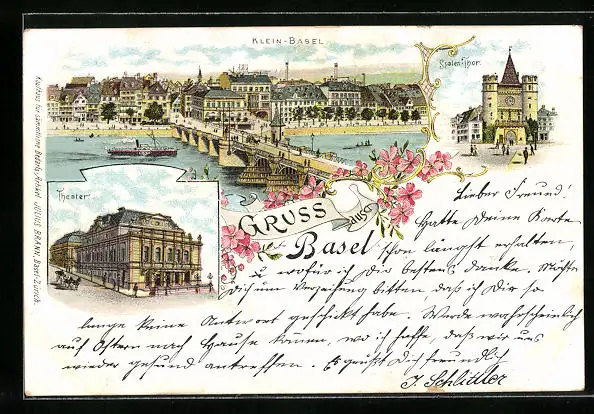 KLEIN-BASEL
Spalen-Thor.
Theater
Kaufhaus für sämmtliche Bedarfs-Artikel JULIUS BRANN, Basel-Zürich.
GRUSS aus
Basel
Lieber Freund!
Hatte Deine Karte
schon längst erhalten,
& wofür ich Dir bestens danke. Möchte
Dich um Verzeihung bitten, daß ich Dir so
lange keine Antwort geschickt habe. Werde wahrscheinlich
auf Ostern nach Hause kommen, wo ich hoffe, daß wir uns
wieder gesund antreffen. Es grüßt Dich freundlich
J. Schlittler